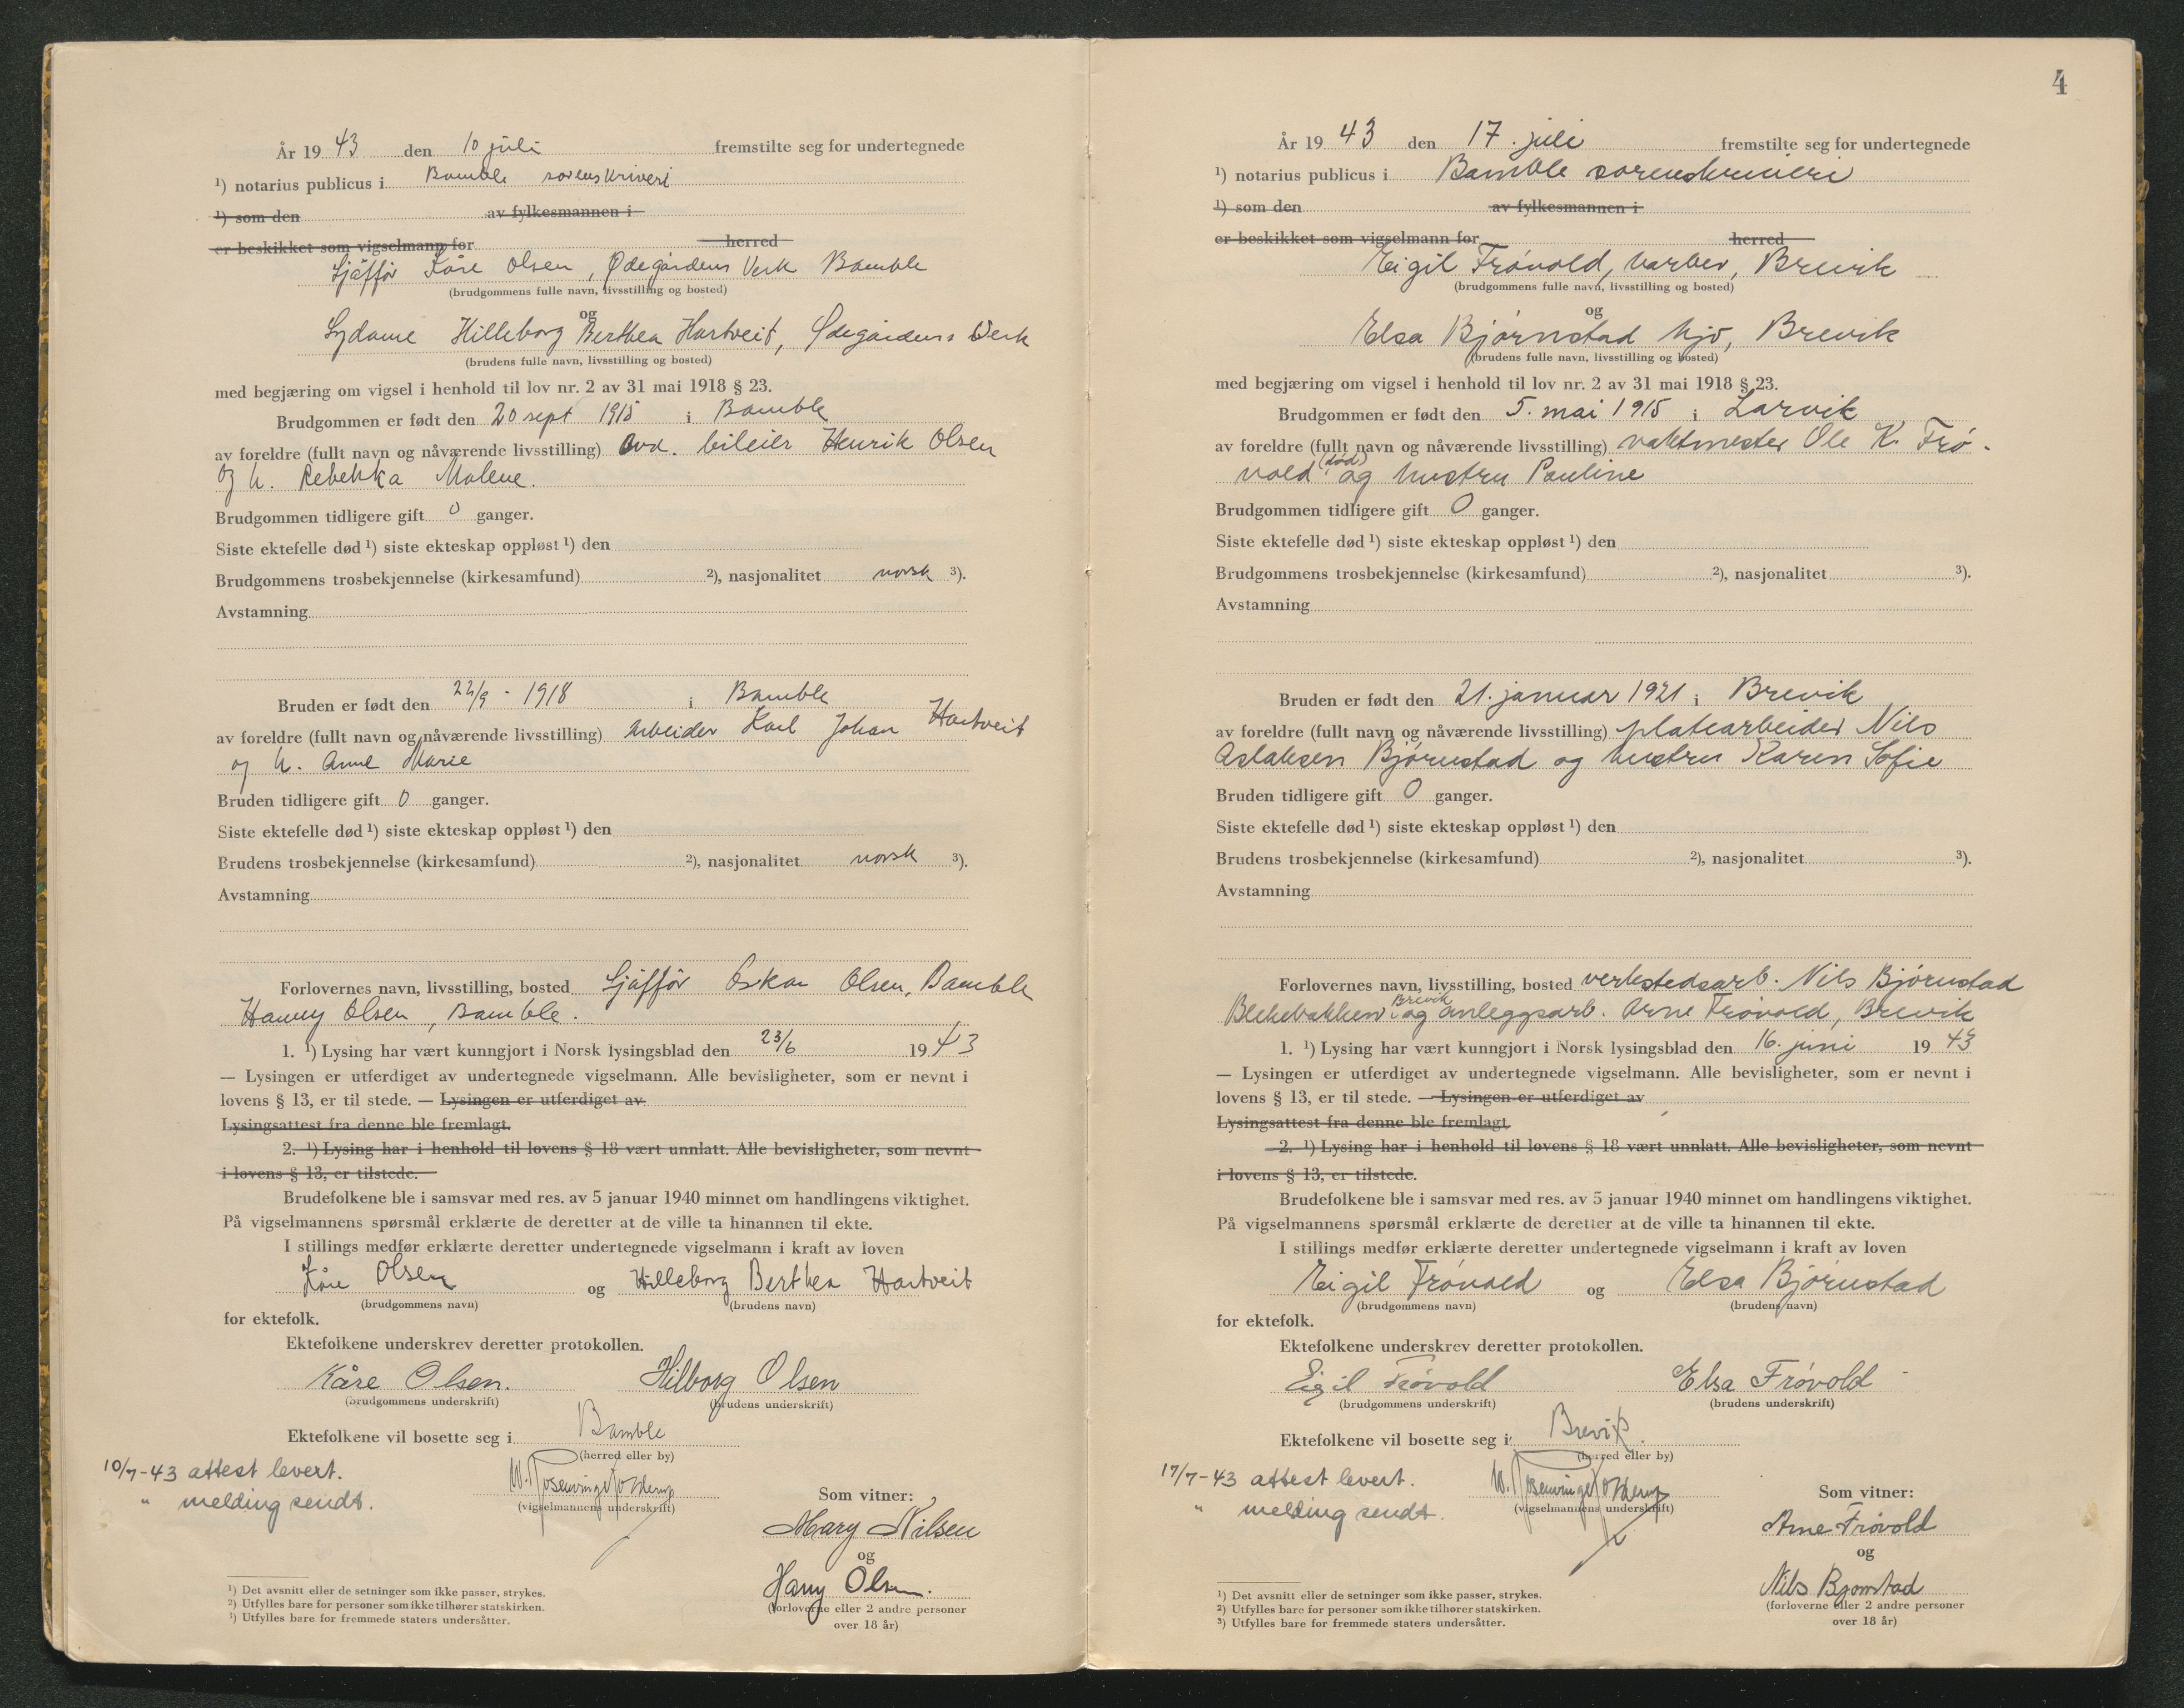 År 19 43 den 10 juli fremstilte seg for undertegnede
¹) notarius publicus i Bamble sorenskriveri
¹) som den av fylkesmannen i
er beskikket som vigselmann for herred
Sjåffør Kåre Olsen, Ødegårdens Verk Bamble
(brudgommens fulle navn, livsstilling og bosted)
og
Hilleborg Berthea Hartveit, Ødegårdens Verk
(brudens fulle navn, livsstilling og bosted)
med begjæring om vigsel i henhold til lov nr. 2 av 31 mai 1918 § 23.
Brudgommen er født den 20 sept 1915 i Bamble
av foreldre (fullt navn og nåværende livsstilling) avd. bileier Henrik Olsen
og h. Rebekka Malene.
Brudgommen tidligere gift 0 ganger.
Siste ektefelle død ¹) siste ekteskap oppløst ¹) den
Brudgommens trosbekjennelse (kirkesamfund) ²), nasjonalitet norsk ³).
Avstamning
Bruden er født den 22/9 - 1918 i Bamble
av foreldre (fullt navn og nåværende livsstilling) arbeider Karl Johan Hartveit
og h. Anne Marie
Bruden tidligere gift 0 ganger.
Siste ektefelle død ¹) siste ekteskap oppløst ¹) den
Brudens trosbekjennelse (kirkesamfund) ²), nasjonalitet norsk ³).
Avstamning
Forlovernes navn, livsstilling, bosted Sjåffør Oskar Olsen, Bamble
Harry Olsen, Bamble.
1. ¹) Lysing har vært kunngjort i Norsk lysingsblad den 23/6 19 43
— Lysingen er utferdiget av undertegnede vigselmann. Alle bevisligheter, som er nevnt i
lovens § 13, er til stede. — Lysingen er utferdiget av
Lysingsattest fra denne ble fremlagt.
2. ¹) Lysing har i henhold til lovens § 18 vært unnlatt. Alle bevisligheter, som nevnt
i lovens § 13, er tilstede.
Brudefolkene ble i samsvar med res. av 5 januar 1940 minnet om handlingens viktighet.
På vigselmannens spørsmål erklærte de deretter at de ville ta hinannen til ekte.
I stillings medfør erklærte deretter undertegnede vigselmann i kraft av loven
Kåre Olsen og Hilleborg Berthea Hartveit
(brudgommens navn) (brudens navn)
for ektefolk.
Ektefolkene underskrev deretter protokollen.
Kåre Olsen. Hilborg Olsen
(brudgommens underskrift) (brudens underskrift)
Ektefolkene vil bosette seg i Bamble
(herred eller by)
10/7-43 attest levert.
" melding sendt.
(vigselmannens underskrift)
Som vitner:
Mary Nilsen
og
Harry Olsen.
(forloverne eller 2 andre personer
over 18 år)
¹) Det avsnitt eller de setninger som ikke passer, strykes.
²) Utfylles bare for personer som ikke tilhører statskirken.
³) Utfylles bare for fremmede staters undersåtter.
4
År 19 43 den 17. juli fremstilte seg for undertegnede
¹) notarius publicus i Bamble sorenskriveri
¹) som den av fylkesmannen i
er beskikket som vigselmann for herred
Eigil Frøvold, barber, Brevik
(brudgommens fulle navn, livsstilling og bosted)
og
Elsa Bjørnstad hjv, Brevik
(brudens fulle navn, livsstilling og bosted)
med begjæring om vigsel i henhold til lov nr. 2 av 31 mai 1918 § 23.
Brudgommen er født den 5. mai 1915 i Larvik
av foreldre (fullt navn og nåværende livsstilling) vaktmester Ole K. Frø-
vold (død) og hustru Pauline
Brudgommen tidligere gift 0 ganger.
Siste ektefelle død ¹) siste ekteskap oppløst ¹) den
Brudgommens trosbekjennelse (kirkesamfund) ²), nasjonalitet ³).
Avstamning
Bruden er født den 21. januar 1921 i Brevik
av foreldre (fullt navn og nåværende livsstilling) platearbeider Nils
Aslaksen Bjørnstad og hustru Karen Sofie
Bruden tidligere gift 0 ganger.
Siste ektefelle død ¹) siste ekteskap oppløst ¹) den
Brudens trosbekjennelse (kirkesamfund) ²), nasjonalitet ³).
Avstamning
Forlovernes navn, livsstilling, bosted verkstedsarb. Nils Bjørnstad
Blekebakken Brevik og anleggsarb. Arne Frøvold, Brevik
1. ¹) Lysing har vært kunngjort i Norsk lysingsblad den 16. juni 19 43
— Lysingen er utferdiget av undertegnede vigselmann. Alle bevisligheter, som er nevnt i
lovens § 13, er til stede. — Lysingen er utferdiget av
Lysingsattest fra denne ble fremlagt
2. ¹) Lysing har i henhold til lovens § 18 vært unnlatt. Alle bevisligheter, som nevnt
i lovens § 13, er tilstede.
Brudefolkene ble i samsvar med res. av 5 januar 1940 minnet om handlingens viktighet.
På vigselmannens spørsmål erklærte de deretter at de ville ta hinannen til ekte.
I stillings medfør erklærte deretter undertegnede vigselmann i kraft av loven
Eigil Frøvold og Elsa Bjørnstad
(brudgommens navn) (brudens navn)
for ektefolk.
Ektefolkene underskrev deretter protokollen.
Eigil Frøvold Elsa Frøvold
(brudgommens underskrift) (brudens underskrift)
Ektefolkene vil bosette seg i Brevik.
(herred eller by)
17/7-43 attest levert.
" melding sendt.
(vigselmannens underskrift)
Som vitner:
Arne Frøvold
og
Nils Bjørnstad
(forloverne eller 2 andre personer
over 18 år)
¹) Det avsnitt eller de setninger som ikke passer, strykes.
²) Utfylles bare for personer som ikke tilhører statskirken.
³) Utfylles bare for fremmede staters undersåtter.